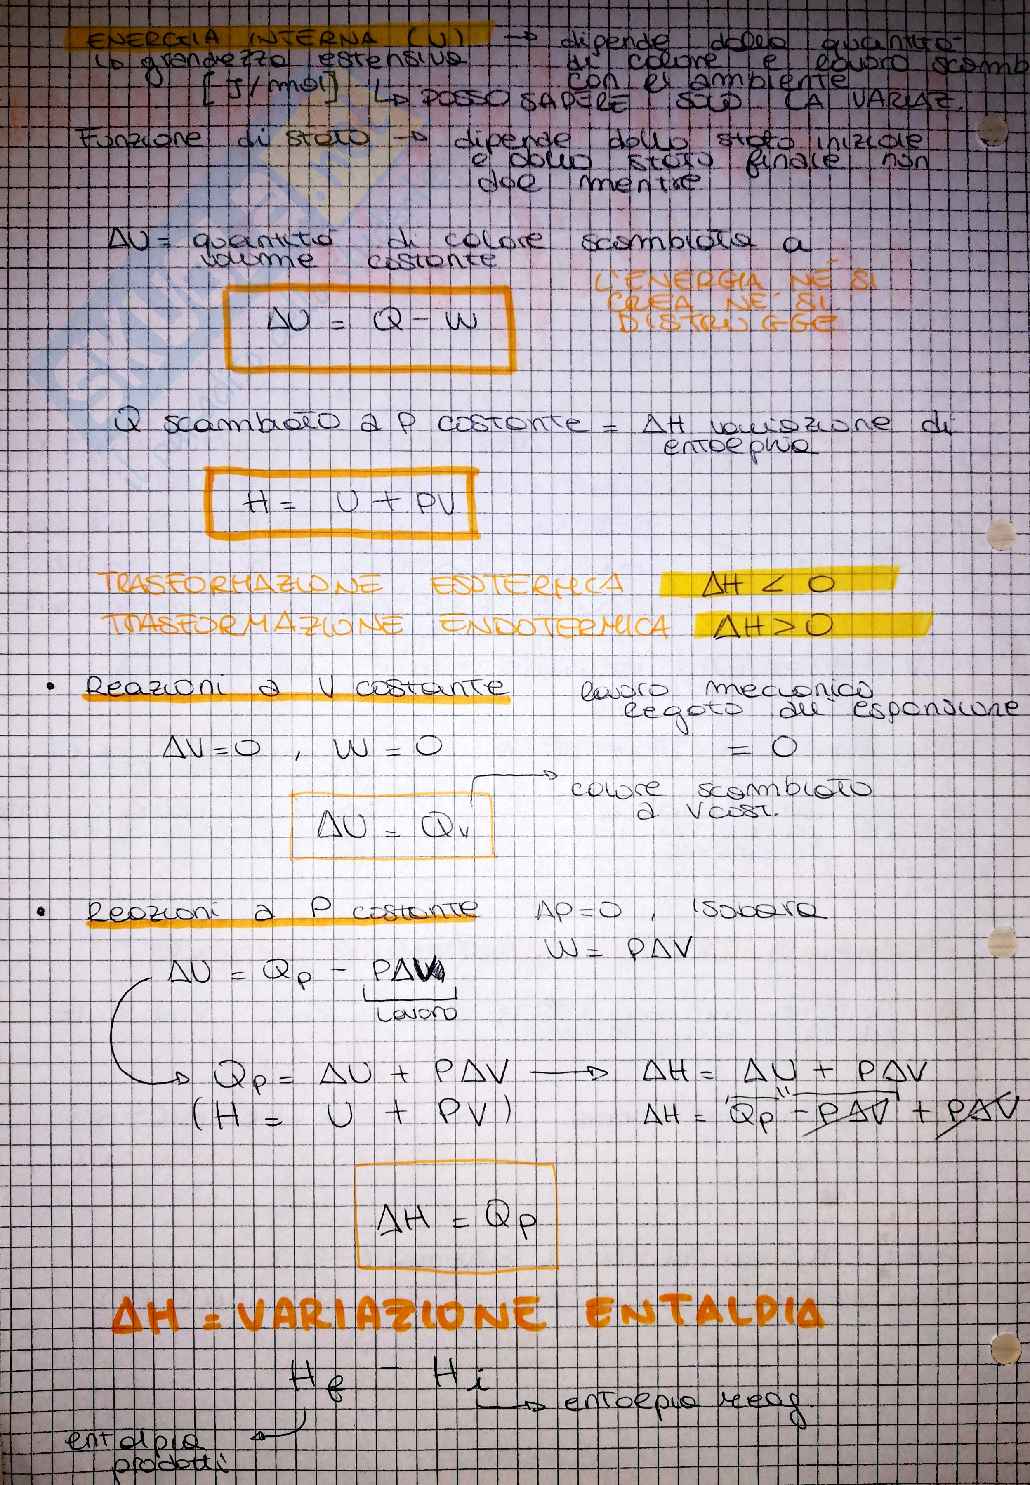 ENERGIA INTERNA (U) → dipende dalla quantità
↳ grandezza estensiva di calore e lavoro scamb
[J/mol] con el ambiente
↳ POSSO SAPERE SOLO LA VARIAZ.
Funzione di stato → dipende dallo stato iniziale
e dallo stato finale non
dal mentre
ΔU = quantità di calore scambiata a
volume costante
L'ENERGIA NÉ SI
CREA NÉ SI
DISTRUGGE
ΔU = Q - W
Q scambiato a P costante = ΔH variazione di
entalphia
H = U + PV
TRASFORMAZIONE ESOTERMICA ΔH < 0
TRASFORMAZIONE ENDOTERMICA ΔH > 0
• Reazioni a V costante lavoro meccanico
legato all' espansione
ΔV = 0 , W = 0 = 0
calore scambiato
a V cost.
ΔU = Qv
• Reazioni a P costante ΔP = 0 , isobara
W = PΔV
ΔU = Qp - PΔV
lavoro
Qp = ΔU + PΔV → ΔH = ΔU + PΔV
(H = U + PV) ΔH = Qp - PΔV + PΔV
ΔH = Qp
ΔH = VARIAZIONE ENTALPIA
Hf - Hi
→ entalpia reag.
entalpia
prodotti